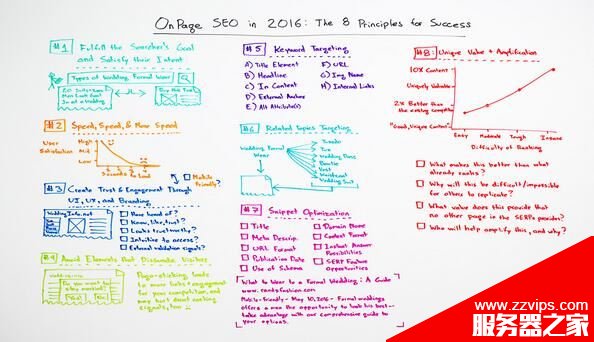 OnPage SEO in 2016: The 8 Principles for Success
#1 Fulfill the Searcher's Goal
and Satisfy their Intent
Types of Wedding Formal Wear
#2 Speed, Speed, & More Speed
User
Satisfaction
High
Med
Low
Seconds to Load
Mobile
Friendly?
#3 Create Trust & Engagement Through
UI, UX, and Branding
WeddingInfo.net
Ever heard of?
Know, like, trust?
Looks trustworthy?
Intuitive to access?
External validation signals?
#4 Avoid Elements that Dissuade Visitors
Do you want to
Pogo-sticking leads
to more links + engagement
for your competitor, and
may hurt direct ranking
signals, too
#5 Keyword Targeting
A) Title Element
B) Headline
C) In Content
D) External Anchor
E) Alt Attribute(s)
F) URL
G) Img Name
H) Internal Links
#6 Related Topics Targeting
Wedding Formal
Wear
Tuxedo
Tux
Wedding Dress
Bowtie
Vest
Waistcoat
Wedding Suit
#7 Snippet Optimization
Title
Meta Descrip.
URL Format
Publication Date
Use of Schema
Domain Name
Content Format
Instant Answer
Possibilities
SERP Feature
Opportunities
What to Wear to a Formal Wedding: A Guide
www.randsfashion.com
Mobile-friendly - May 10, 2016 - Formal weddings
offers a man the opportunity to look his best -
take advantage with our comprehensive guide to
your options.
#8: Unique Value + Amplification
10X Content
Uniquely Valuable
2X Better than
the existing competitor
"Good, Unique Content"
Easy Moderate Tough Insane
Difficulty of Ranking
What makes this better than what
already ranks?
Why will this be difficult/impossible
for others to replicate?
What value does this provide that
no other page in the SERPs provides?
Who will help amplify this, and why?
www.zzvips.com
服务器之家